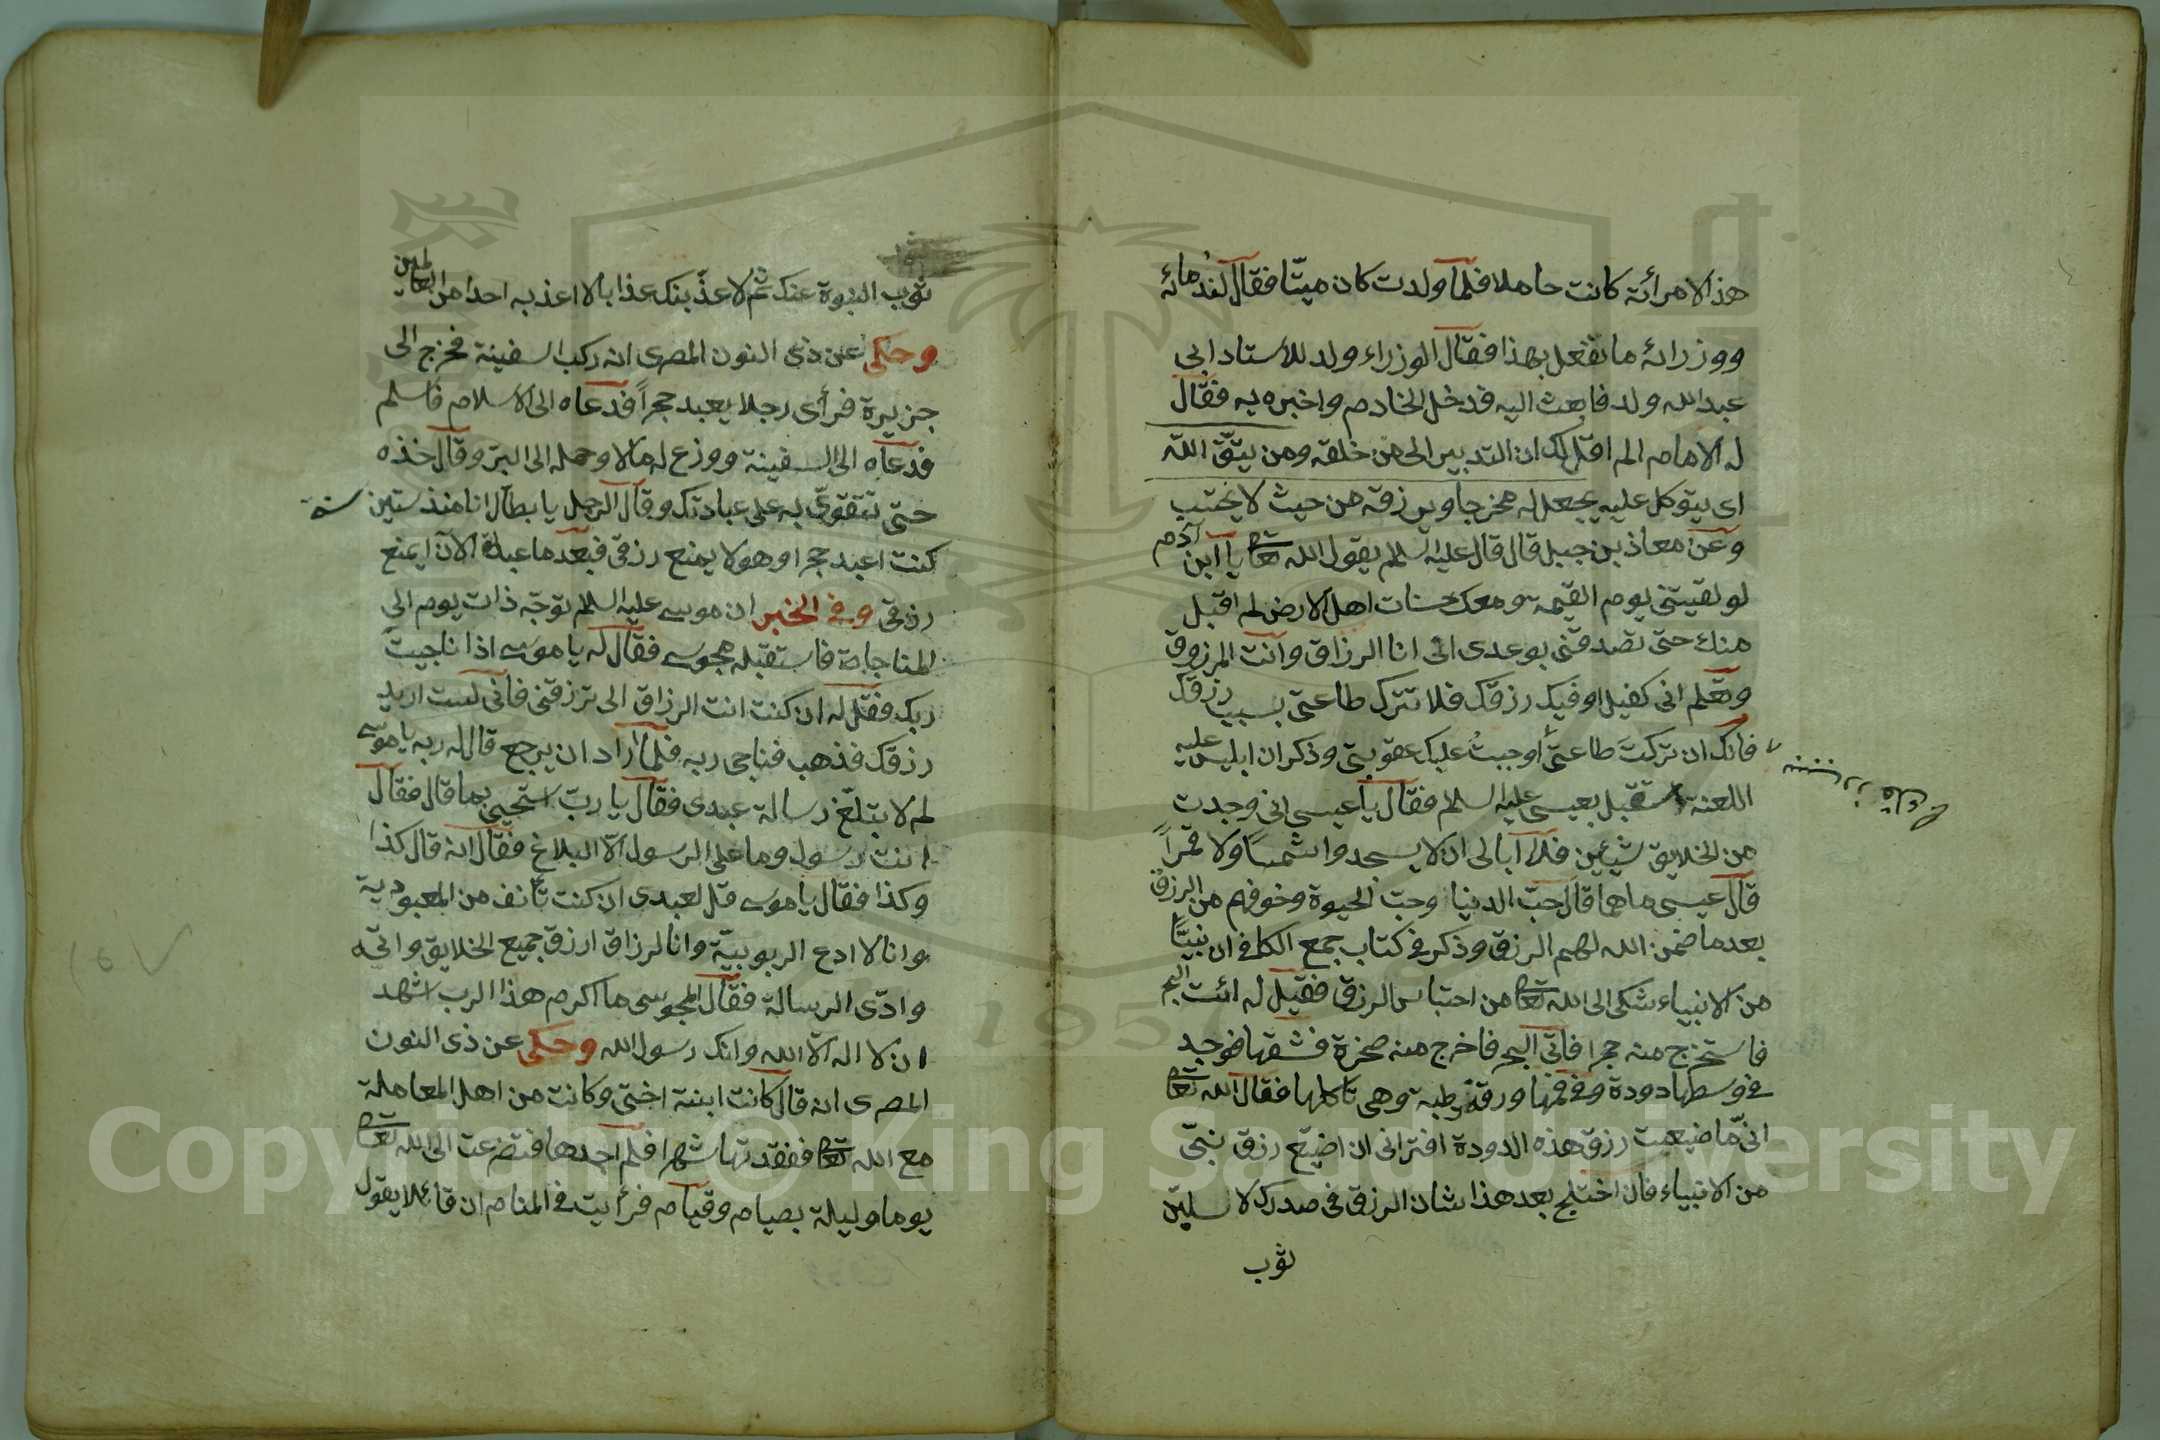 هذا لامرأته كانت حاملا فلما ولدت كان ميتا فقال لندمائه
ووزرائه ما نفعل بهذا فقال الوزراء ولد للاستاد ابى
عبدالله ولد فابعث اليه فدخل الخادم واخبره به فقال
له الامام الم اقل لك ان التدبير الى من خلقه ومن يتّق الله
اى يتوكل عليه يجعل له مخرجا ويرزقه من حيث لا يحتسب
وعن معاذ بن جبل قال قال عليه السلم يقول الله تعا يا ابن آدم
لو لقيتنى يوم القيمة ومعك حسنات اهل الارض لم اقبل
منك حتى تصدقنى بوعدى انى انا الرزاق وانت المرزوق
وتعلم انى كفيل اوفيك رزقك فلا تترك طاعتى بسبب رزقك
فانك ان تركتَ طاعتى أوجبتُ عليك عقوبتى وذكر ان ابليس عليه
اللعنة استقبل بعيسى عليه السلم فقال يا عيسى انى وجدت
من الخلايق شيئين فلا ابالى ان لا يسجدوا شمسًا ولا قمراً
قال عيسى ما هما قال حبّ الدنيا وحبّ الحيوة وخوفهم من الرزق
بعد ما ضمن الله لهم الرزق وذكر فى كتاب جمع الكافى ان نبيًّا
من الانبياء شكى الى الله تعا من احتباس الرزق فقيل له ائت البحر
فاستخرج منه حجرا فاتى البحر فاخرج منه صخرة فشقها فوجد
فى وسطها دودة وفى فمها ورقة رطبة وهى تأكلها فقال الله تعا
انى ما ضيعت رزق هذه الدودة افترانى ان اضيّع رزق نبىّ
من الانبياء فان اختلج بعد هذا شان الرزق فى صدرك لاسلبنّ
ثوب
ثوب النبوة عنك ثم لاعذّبنك عذابا لا اعذبه احدا من العالمين
وحكى عن ذى النون المصرى انه ركب السفينة فخرج الى
جزيرة فرأى رجلا يعبد حجراً فدعاه الى الاسلام فاسلم
فدعاه الى السفينة ووزع له مالا وحمله الى البرّ وقال خذه
حتى تتقوّى به على عبادتك وقال الرجل يا بطّال انا منذ ستين سنة
كنت اعبد حجرا وهو لا يمنع رزقى فبعد ما عبدته الآن ايمنع
رزقى وفى الخبر ان موسى عليه السلم توجّه ذات يوم الى
المناجاة فاستقبله مجوسى فقال له يا موسى اذا ناجيت
ربك فقل له ان كنت انت الرزاق الى ترزقنى فانى لست اريد
رزقك فذهب فناجى ربه فلما اراد ان يرجع قال له ربه يا موسى
لم لا تبلّغ رسالة عبدى فقال يا ربّ استحيى بما قال فقال
انت رسول وما على الرسول الّا البلاغ فقال انه قال كذا
وكذا فقال يا موسى قل لعبدى ان كنت تأنف من العبودية
وانا لا ادع الربوبيّة وانا الرزاق ارزق جميع الخلايق واتى
وادّى الرسالة فقال المجوسى ما اكرم هذا الرب اشهد
ان لا اله الّا الله وانك رسول الله وحكى عن ذى النون
المصرى انه قال كانت ابنة اختى وكانت من اهل المعاملة
مع الله تعا ففقدتها شهرا فلم اجدها فتضرعت الى الله تعا
يوما وليلة بصيام وقيام فرأيت فى المنام ان قائلا يقول
1957
Copyright © King Saud University